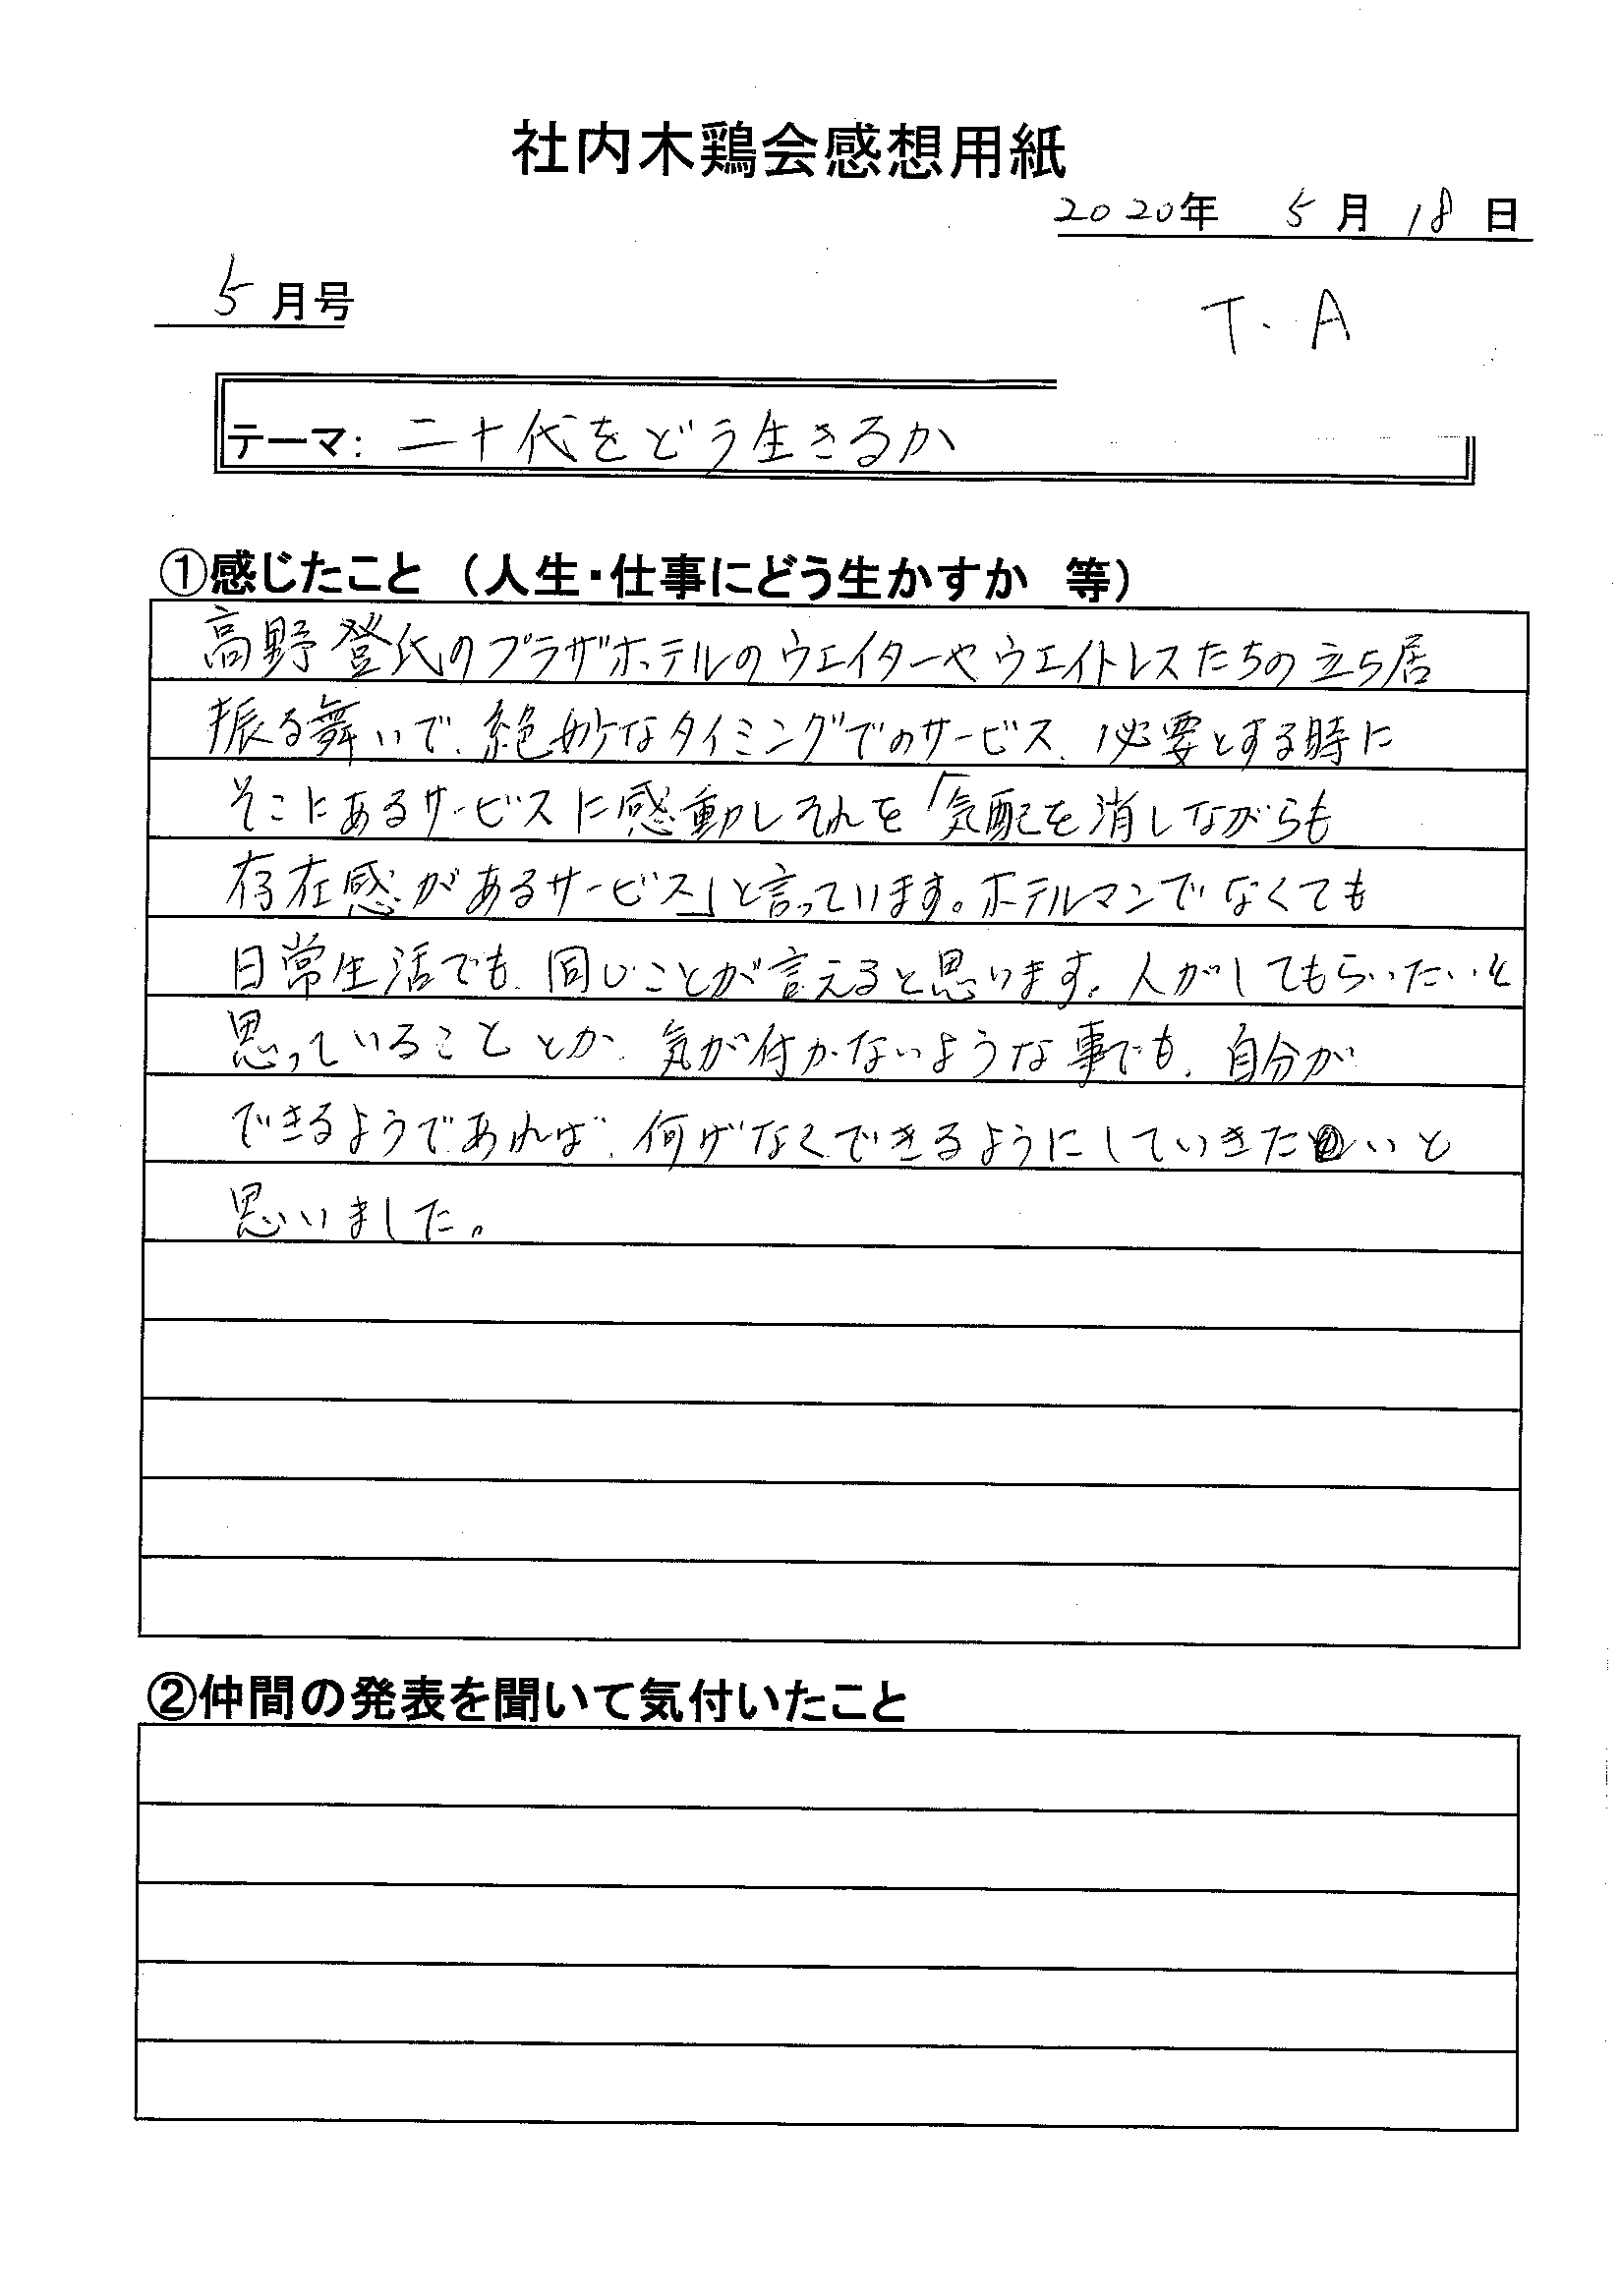 社内木鶏会感想用紙
2020年 5月 18日
5月号
T. A
テーマ: 二十代をどう生きるか
①感じたこと（人生・仕事にどう生かすか 等）
高野登氏のプラザホテルのウエイターやウエイトレスたちの立ち居
振る舞いで、絶妙なタイミングでのサービス、必要とする時に
そこにあるサービスに感動しそれを「気配を消しながらも
存在感があるサービス」と言っています。ホテルマンでなくても
日常生活でも、同じことが言えると思います。人がしてもらいたいと
思っていることとか、気が付かないような事でも、自分が
できるようであれば、何げなくできるようにしていきたいと
思いました。
②仲間の発表を聞いて気付いたこと